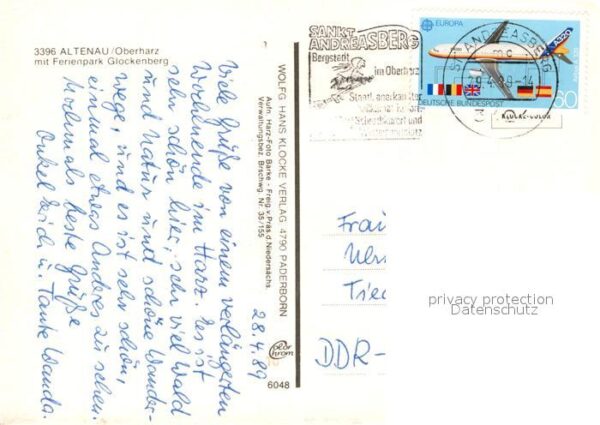 3396 ALTENAU/Oberharz
mit Ferienpark Glockenberg
28.4.89
Viele Grüße von einem verlängerten
Wochenende im Harz. Es ist
sehr schön hier, sehr viel Wald
und Natur und schöne Wander-
wege, und es ist sehr schön,
einmal etwas Anderes zu sehen.
Nochmals beste Grüße
Onkel u. Tante Wanda.
WOLFG. HANS KLOCKE VERLAG 4790 PADERBORN
Aufn. Harz-Foto Barke - Freig. v. Präs. d. Niedersächs.
Verwaltungsbez. Brschwg. Nr. 35/155
color
chrom
6048
SANKT
ANDREASBERG
Bergstadt
im Oberharz
Staatl. anerkannter
ST ANDREASBERG
29.4.89-14
EUROPA
A320
60
DEUTSCHE BUNDESPOST
Frau
Ulr
DDR-
privacy protection
Datenschutz